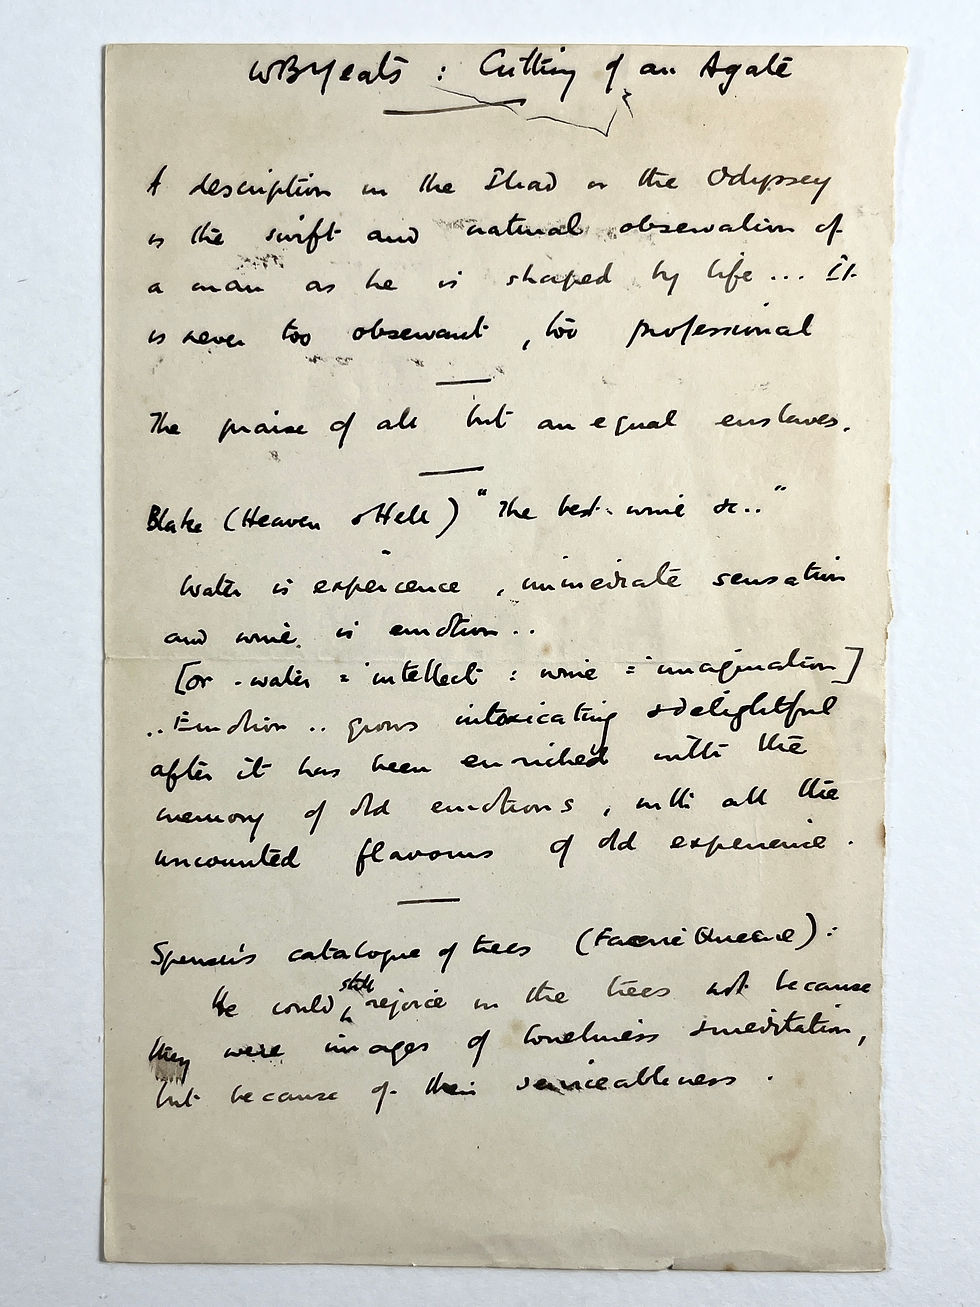 WBYeats : Cutting of an Agate
A description in the Iliad or the Odyssey
is the swift and natural observation of
a man as he is shaped by life ... It
is never too observant , too professional
The praise of all but an equal enslaves.
Blake (Heaven & Hell) "The best wine &c.."
Water is experience , immediate sensation
and wine is emotion ..
[or - water = intellect : wine = imagination]
.. Emotion .. grows intoxicating & delightful
after it has been enriched with the
memory of old emotions , with all the
uncounted flavours of old experience .
Spenser's catalogue of trees (Faerie Queene) :
He could still rejoice in the trees not because
they were images of loneliness & meditation,
but because of their serviceableness .